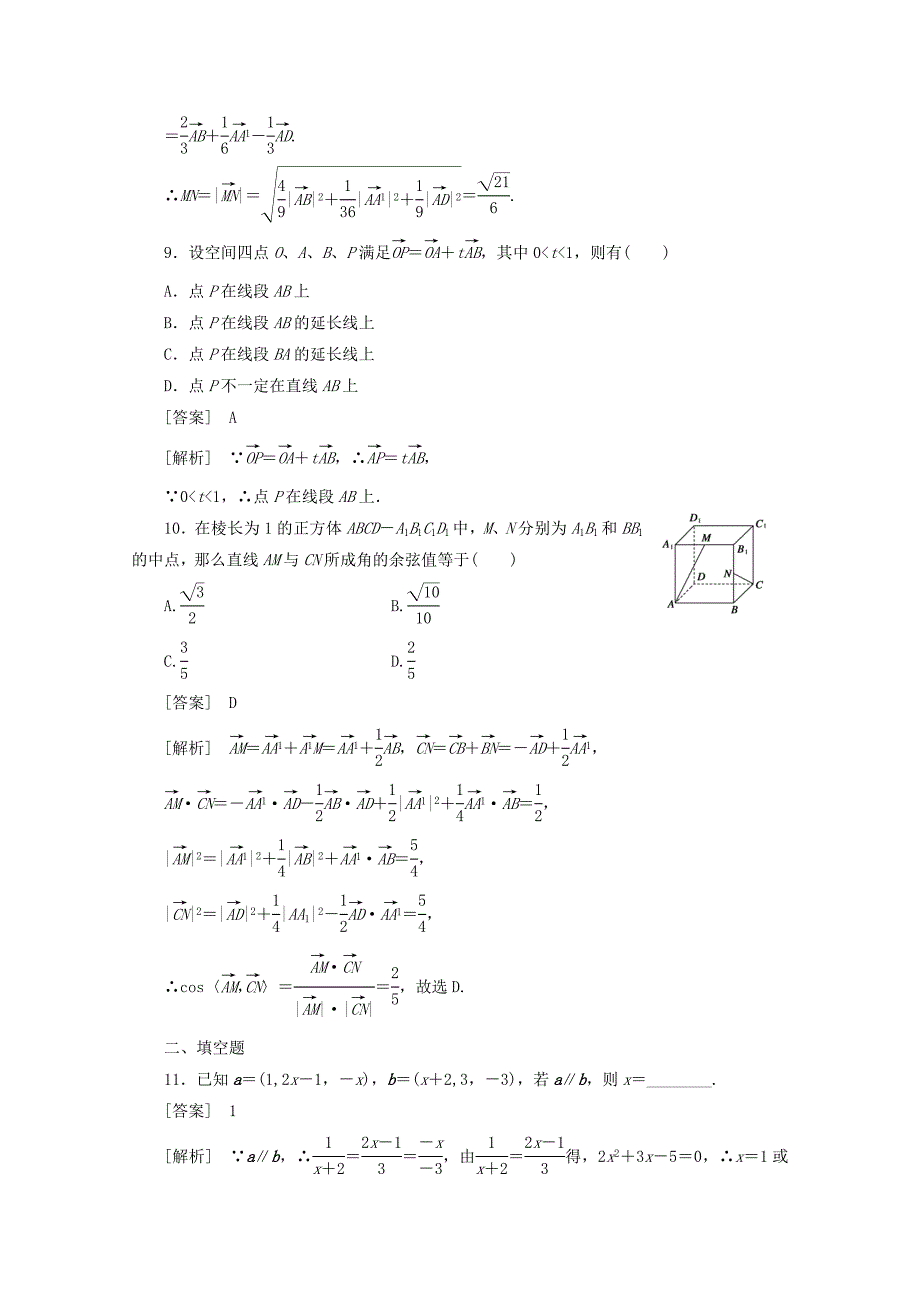 =2/3 AB→+1/6 AA→1-1/3 AD→.
∴MN=|MN→|=√(4/9|AB→|²+1/36|AA→1|²+1/9|AD→|²)=√21/6.
9．设空间四点 O、A、B、P 满足OP→=OA→+tAB→，其中 0<t<1，则有(　　)
A．点 P 在线段 AB 上
B．点 P 在线段 AB 的延长线上
C．点 P 在线段 BA 的延长线上
D．点 P 不一定在直线 AB 上
[答案]　A
[解析]　∵OP→=OA→+tAB→，∴AP→=tAB→，
∵0<t<1，∴点 P 在线段 AB 上．
10．在棱长为 1 的正方体 ABCD－A₁B₁C₁D₁ 中，M、N 分别为 A₁B₁ 和 BB₁
的中点，那么直线 AM 与 CN 所成角的余弦值等于(　　)
D₁ C₁
A₁ M B₁
N
D C
A B
A.√3/2　B.√10/10
C.3/5　D.2/5
[答案]　D
[解析]　AM→=AA→1+A→1M=AA→1+1/2 AB→，CN→=CB→+BN→=-AD→+1/2 AA→1，
AM→·CN→=-AA→1·AD→-1/2 AB→·AD→+1/2|AA→1|²+1/4 AA→1·AB→=1/2，
|AM→|²=|AA→1|²+1/4|AB→|²+AA→1·AB→=5/4，
|CN→|²=|AD→|²+1/4|AA₁|²-1/2 AD→·AA→1=5/4，
∴cos〈AM→,CN→〉=AM→·CN→/(|AM→|·|CN→|)=2/5，故选 D.
二、填空题
11．已知 a=(1,2x-1，-x)，b=(x+2,3，-3)，若 a∥b，则 x=________.
[答案]　1
[解析]　∵a∥b，∴1/(x+2)=(2x-1)/3=-x/-3，由1/(x+2)=(2x-1)/3得，2x²+3x-5=0，∴x=1 或